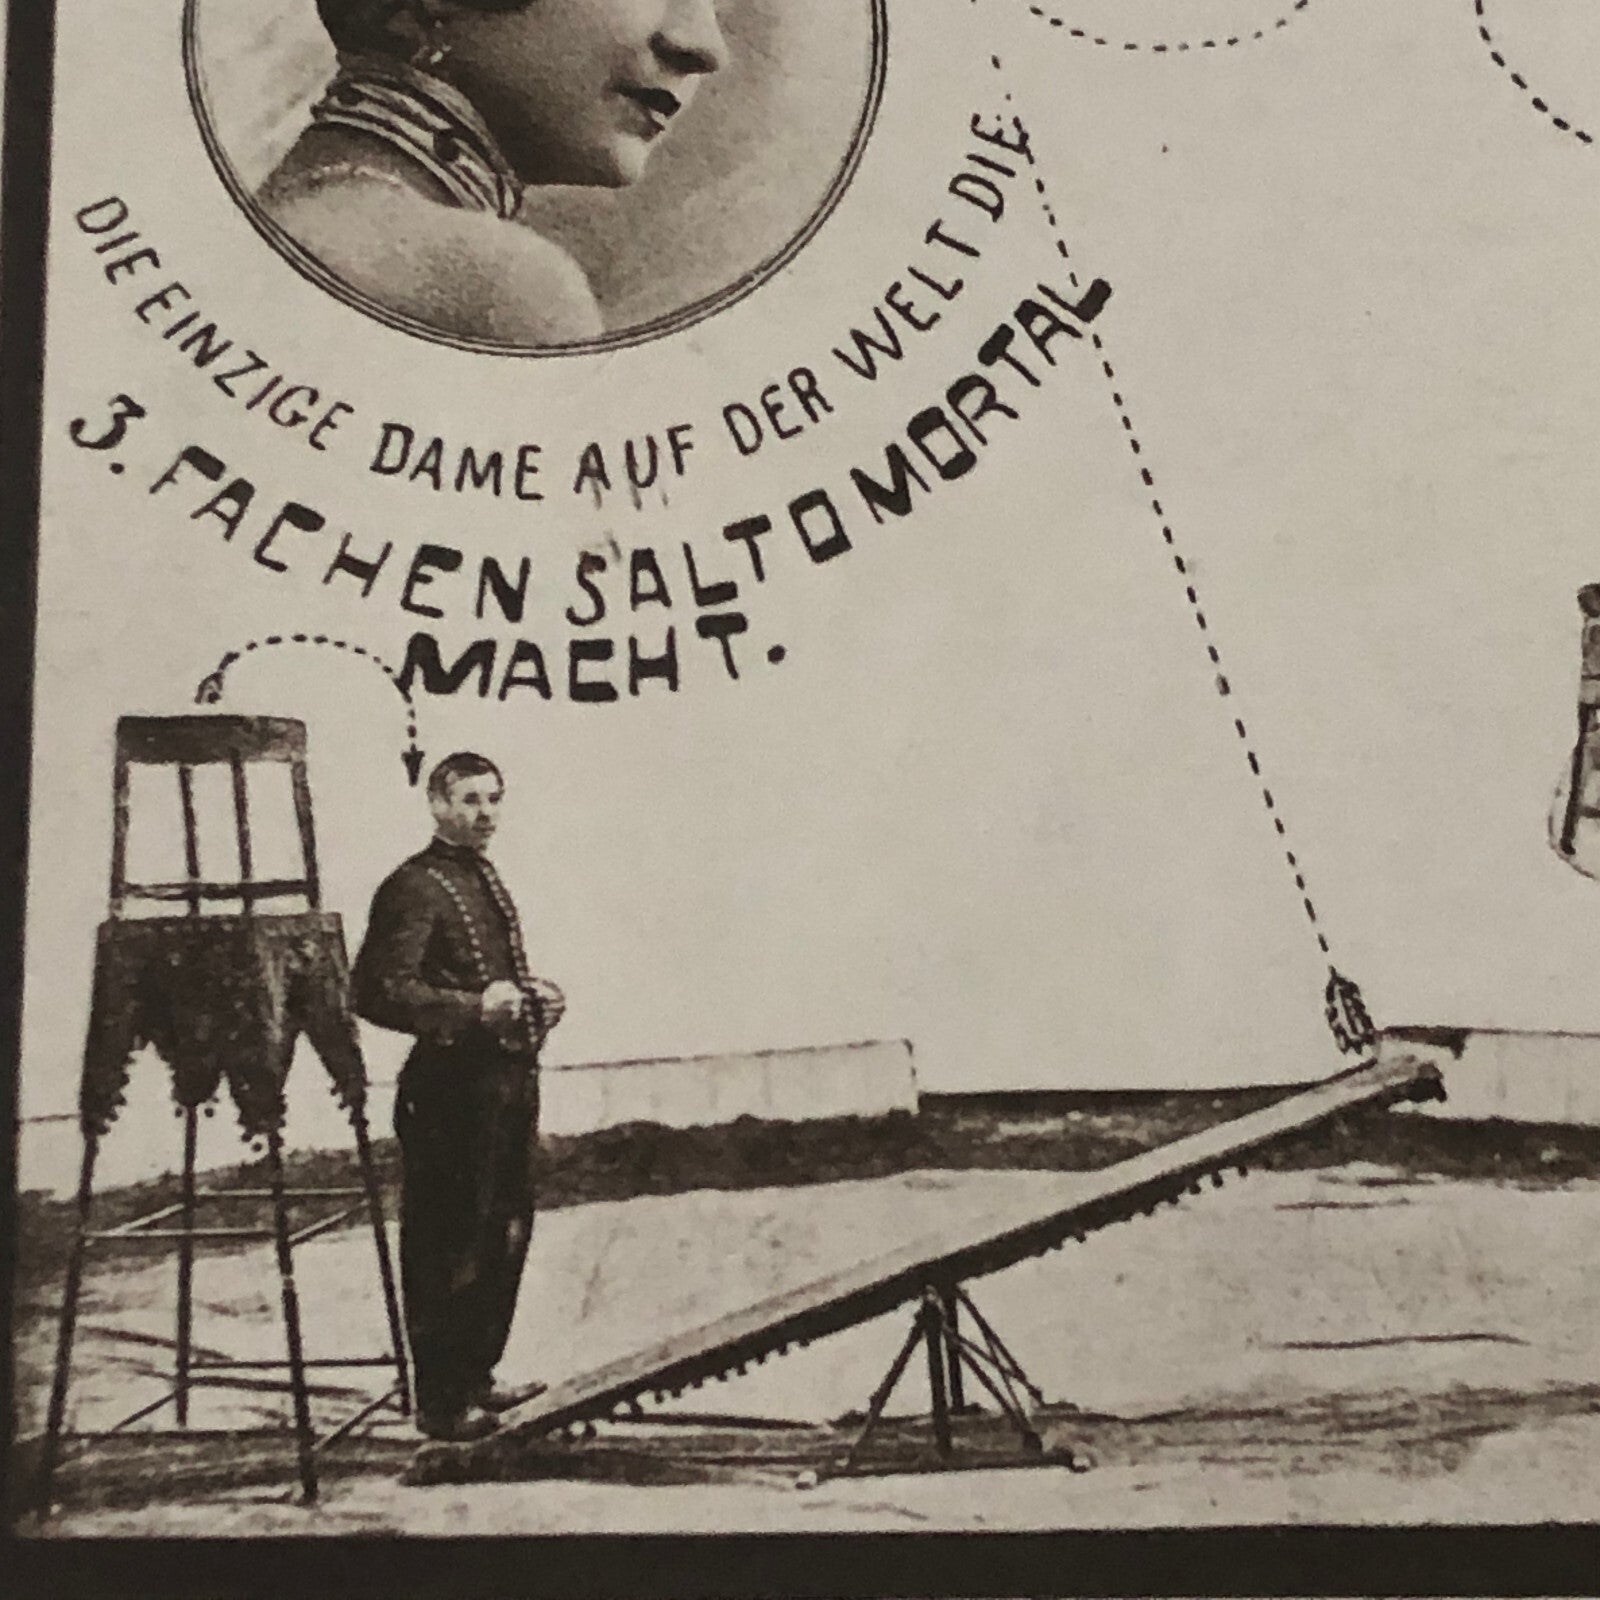 DIE EINZIGE DAME AUF DER WELT DIE
3. FACHEN SALTO MORTAL
MACHT.